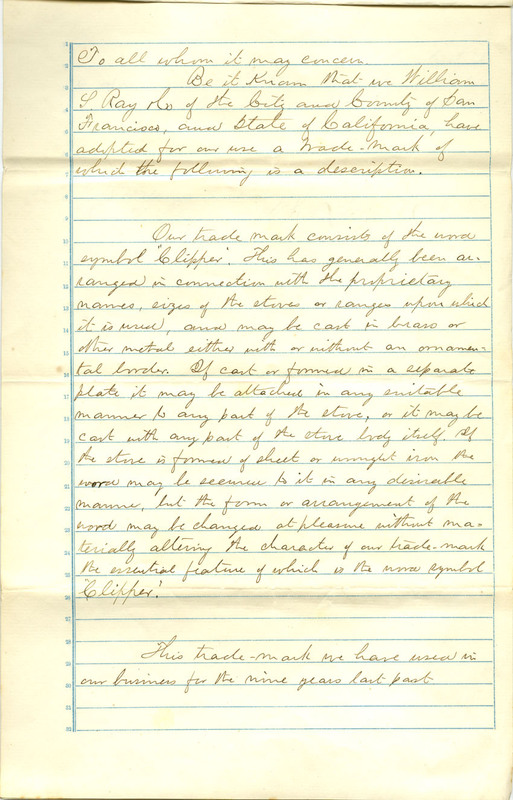 To all whom it may concern.
Be it Known that we William
S. Ray & Co of the City and County of San
Francisco, and State of California, have
adopted for our use a trade-mark of
which the following is a description.
Our trade mark consists of the word
symbol "Clipper". This has generally been ar-
ranged in connection with the proprietary
names, sizes of the stoves or ranges upon which
it is used, and may be cast in brass or
other metal either with or without an ornamen-
tal border. If cast or formed in a separate
plate it may be attached in any suitable
manner to any part of the stove, or it may be
cast with any part of the stove body itself. If
the stove is formed of sheet or wrought iron the
word may be secured to it in any desirable
manner, but the form or arrangement of the
word may be changed at pleasure without ma-
terially altering the character of our trade-mark
the essential feature of which is the word symbol
"Clipper".
This trade-mark we have used in
our business for the nine years last past